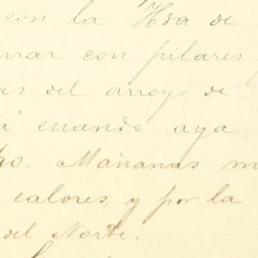 con la Hda de
rrar con pilares
as del arroyo de
á cuando aya
ho. Mañanas m
calores, y por la
del Norte.